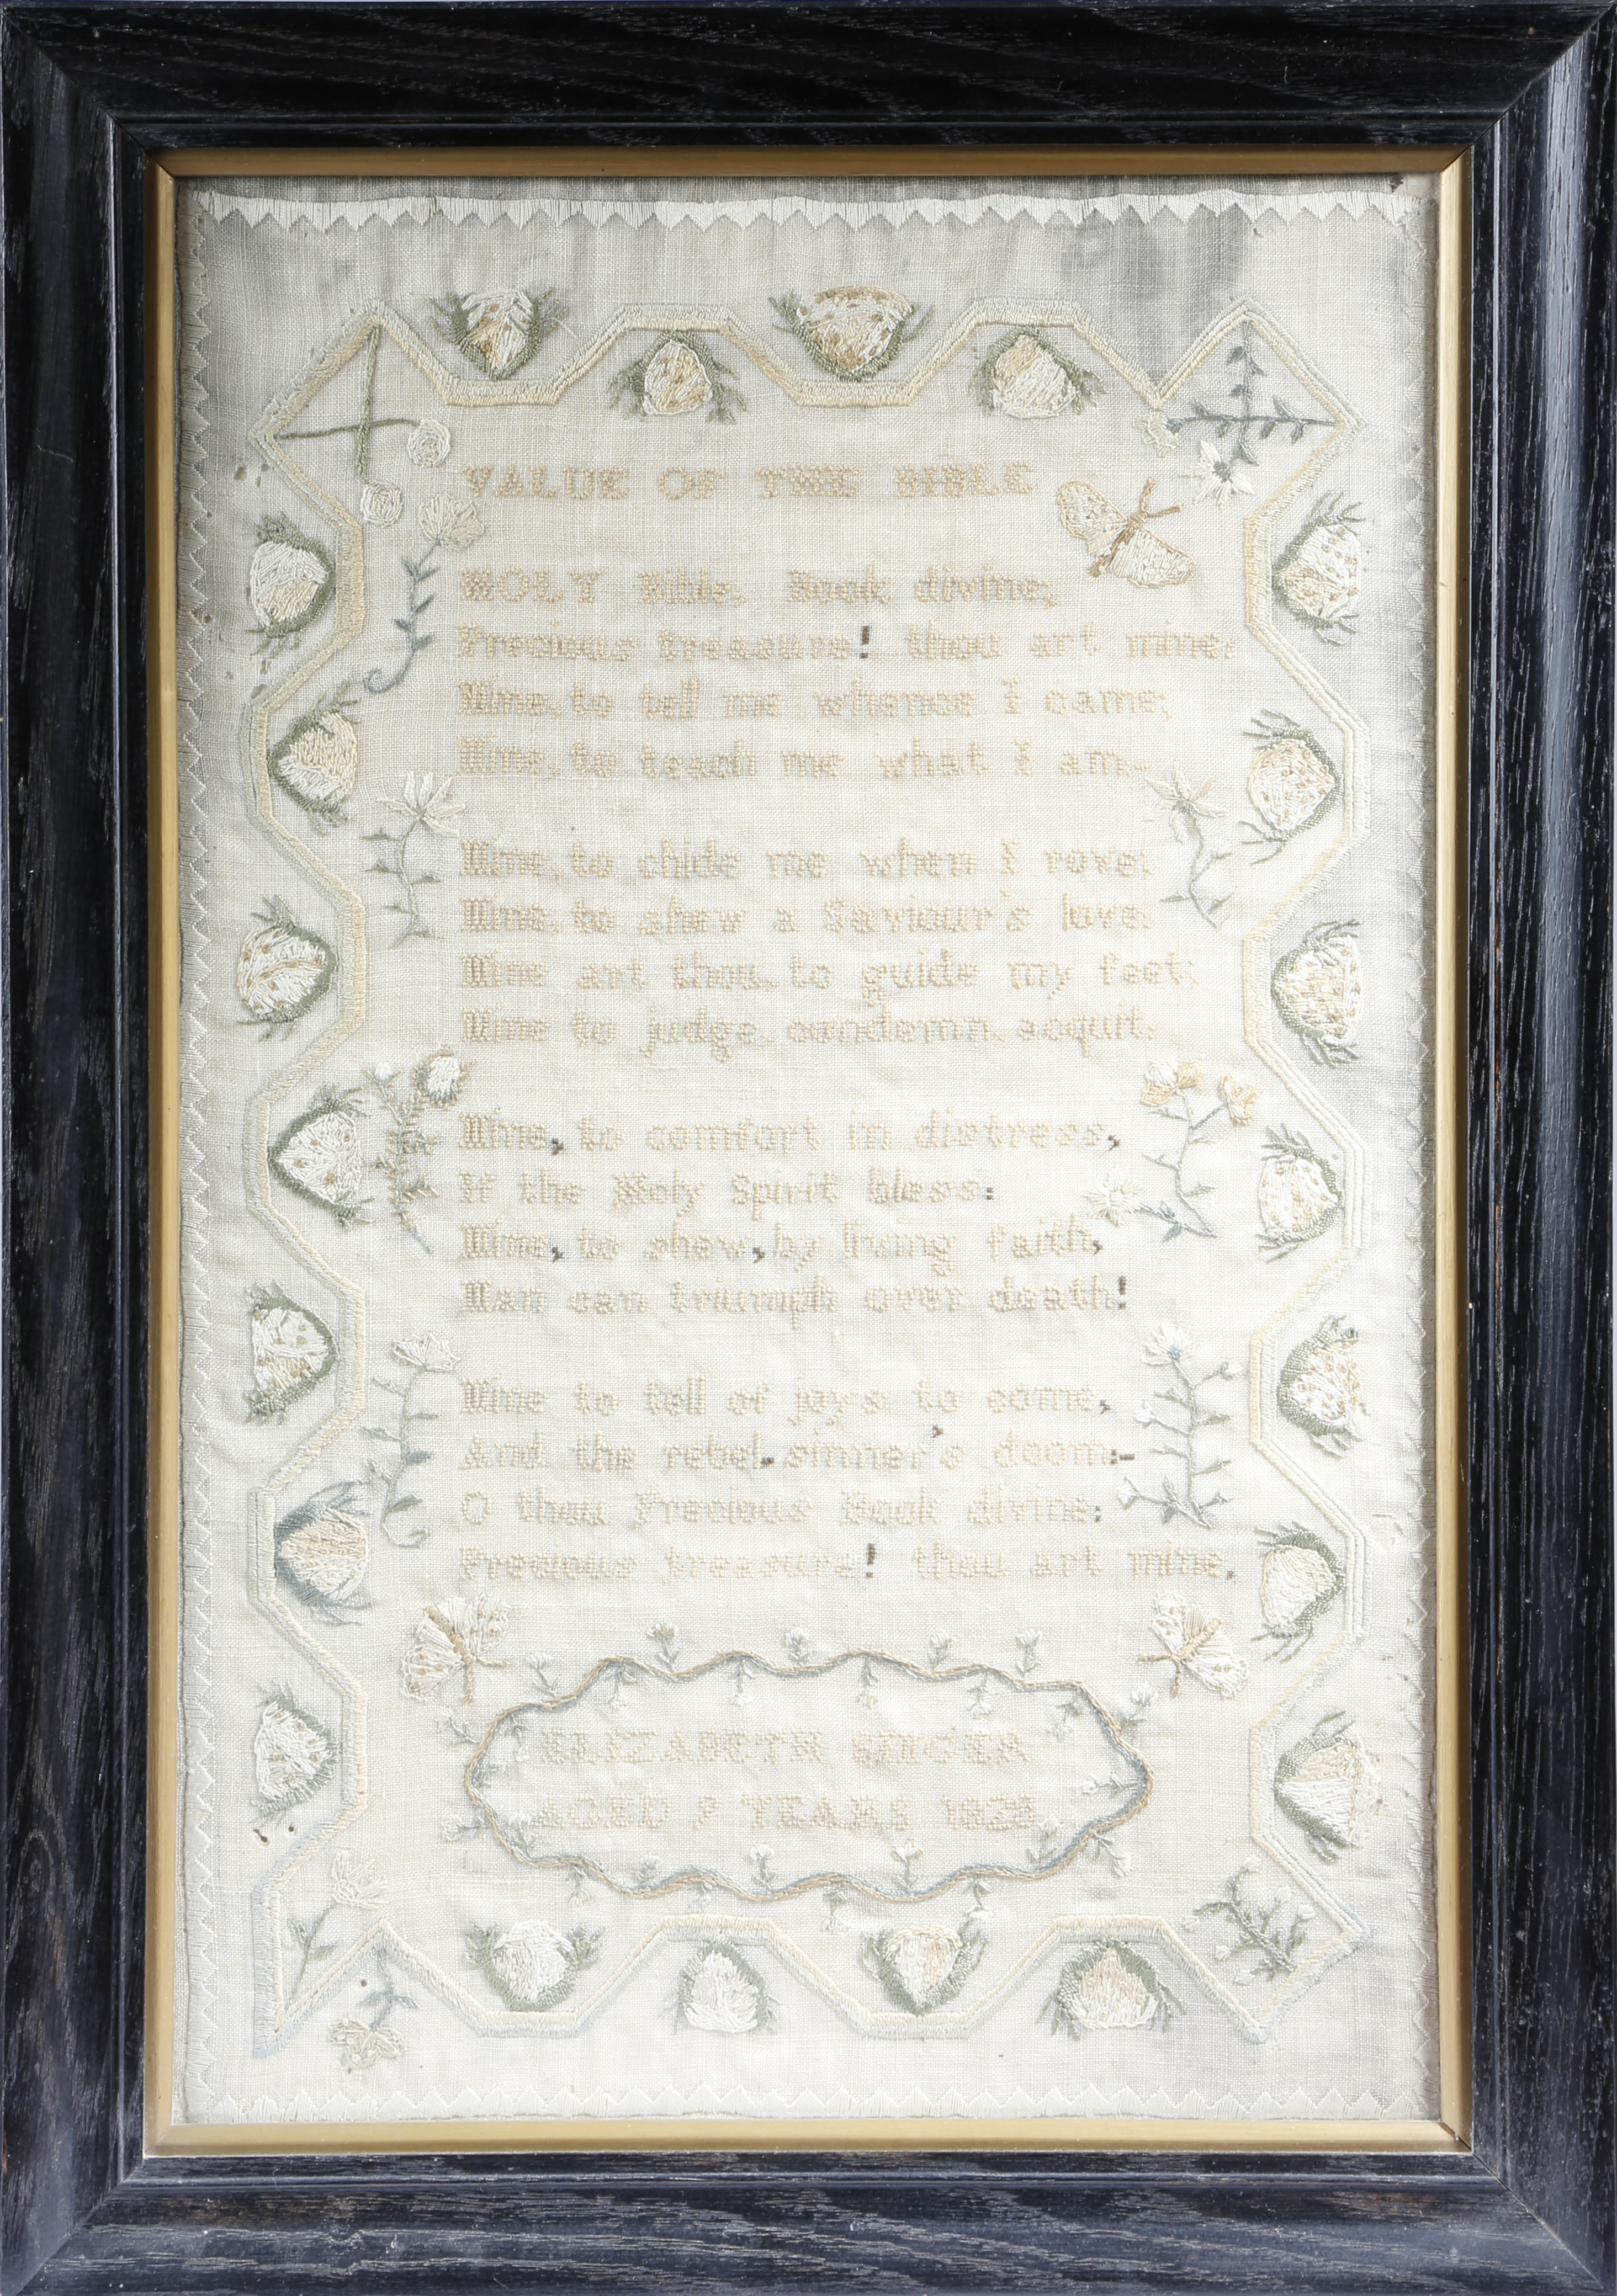 VALUE OF THE BIBLE
HOLY Bible, Book divine;
Precious treasure! thou art mine;
Mine, to tell me whence I came;
Mine, to teach me what I am-
Mine, to chide me when I rove;
Mine, to shew a Saviour's love.
Mine art thou, to guide my feet;
Mine to judge, condemn, acquit.
Mine, to comfort in distress,
If the Holy Spirit bless:
Mine, to shew, by living faith,
Man can triumph over death!
Mine to tell of joys to come,
And the rebel sinner's doom:-
O thou Precious Book divine:
Precious treasure! thou art mine.
ELIZABETH SINGER
AGED YEARS 1828